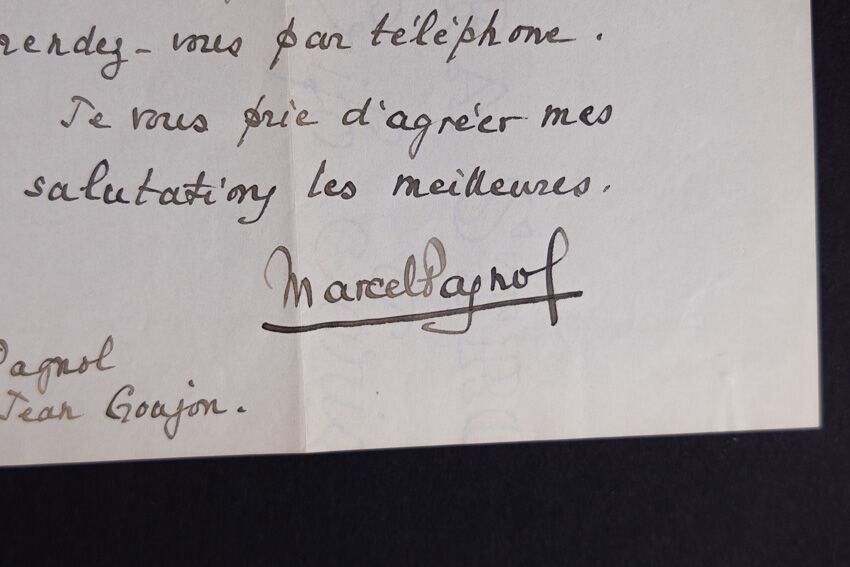 rendez-vous par téléphone.
Je vous prie d'agréer mes
salutations les meilleures.
Marcel Pagnol
Pagnol
Jean Goujon.